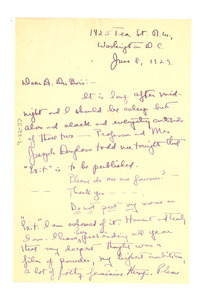 1925 Tea St. N.W.
Washington D.C.
June 8, 1929.
Dear Dr. Du Bois—
It is long after mid-
night and I should be asleep but
alas and alack and everything outside
of those two — Professor and Mrs
Joseph Douglass told me tonight that
is to be published.
Please do me one favour? —
Thank you —
Do not put my name on
I am ashamed of it. Honest and truly
I am. I have been all year
that my deepest thought was a
film of powder, my highest ambition,
a lot of pretty feminine things. Please